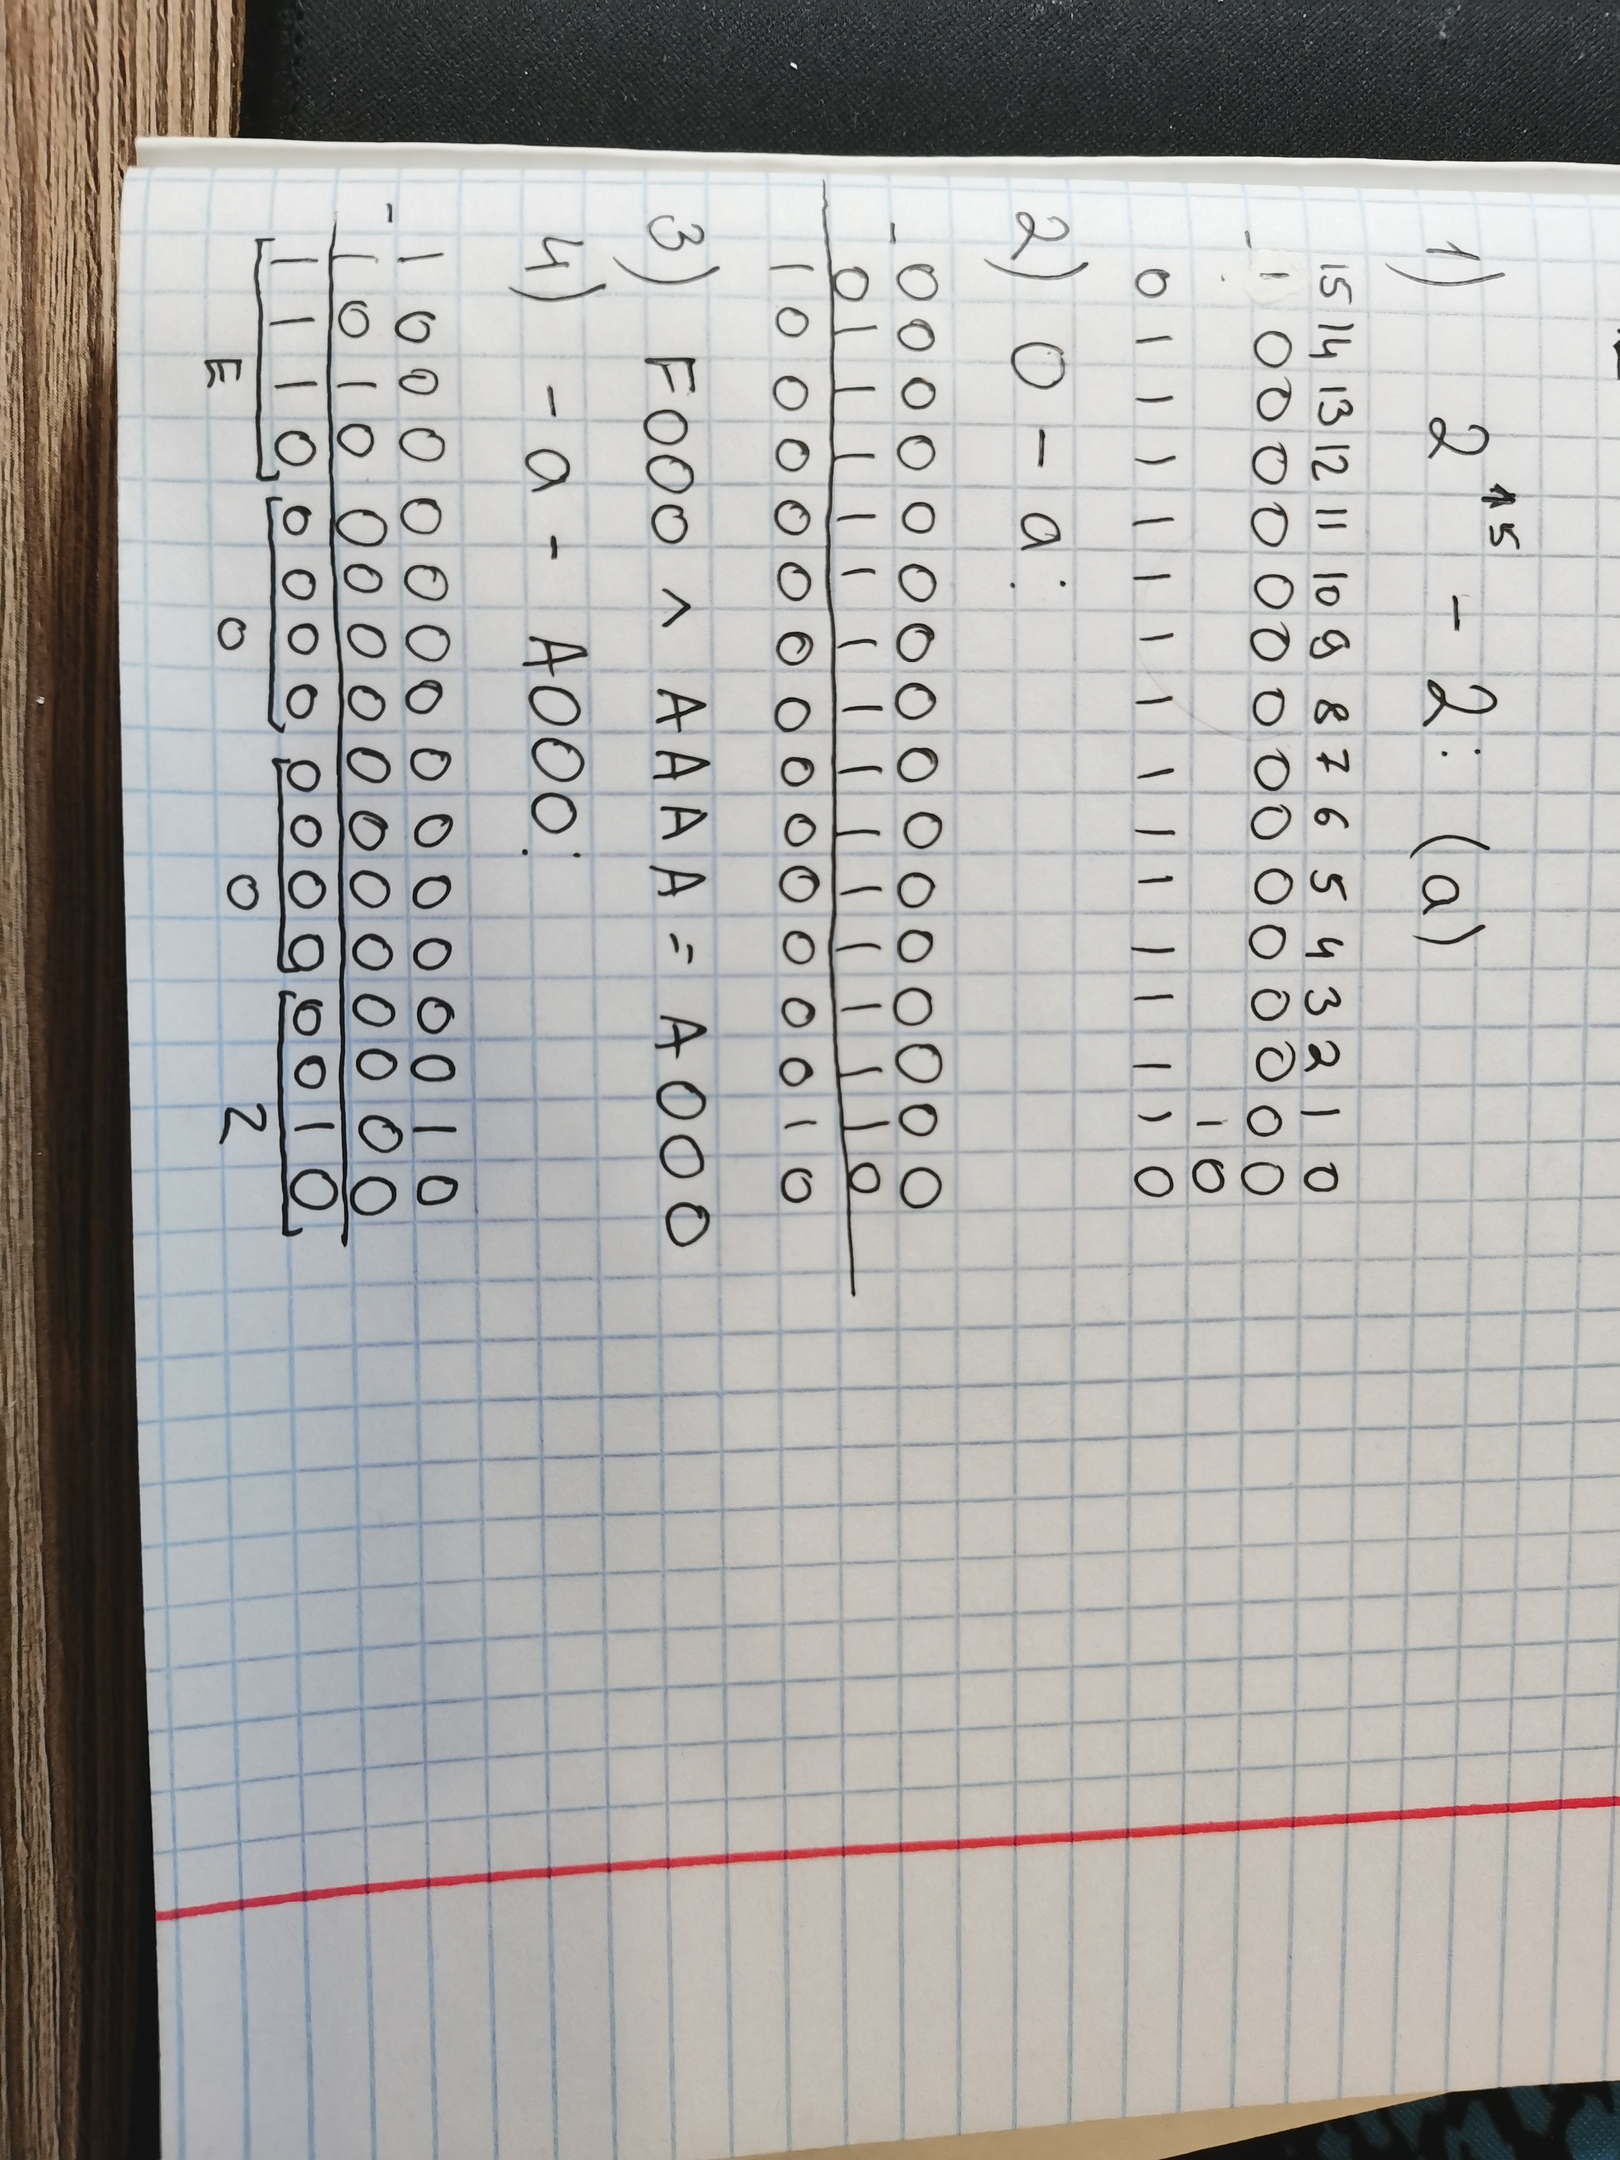 1) 2^15 - 2: (a)
15 14 13 12 11 10 9 8 7 6 5 4 3 2 1 0
- 1 0 0 0 0 0 0 0 0 0 0 0 0 0 0 0
1 0
0 1 1 1 1 1 1 1 1 1 1 1 1 1 1 0
2) 0 - a:
- 0 0 0 0 0 0 0 0 0 0 0 0 0 0 0 0
0 1 1 1 1 1 1 1 1 1 1 1 1 1 1 0
1 0 0 0 0 0 0 0 0 0 0 0 0 0 1 0
3) F000 ^ AAAA = A000
4) -a - A000:
- 1 0 0 0 0 0 0 0 0 0 0 0 0 0 1 0
1 0 1 0 0 0 0 0 0 0 0 0 0 0 0 0
1 1 1 0 0 0 0 0 0 0 0 0 0 0 1 0
E 0 0 2